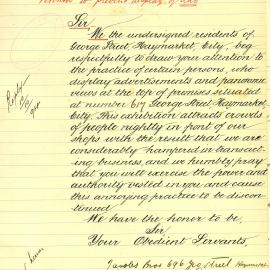 Petition to prevent display of
Sir
We the undersigned residents of
George Street Haymarket,
City, beg
respectfully to draw your attention to
the practice of certain persons, who
display advertisements and panoramic
views at the top of premises situated
at number 617 George Street Haymarket,
City. This exhibition attracts crowds
of people nightly in front of our
shops with the result that we are
considerably hampered in transact-
ing business, and we humbly pray
that you will exercise the power and
authority vested in you and cause
this annoying practice to be discon-
tinued.
We have the honor to be,
Sir
Your Obedient Servants,
Jacobs Bros 696 Geo Street Haymarket